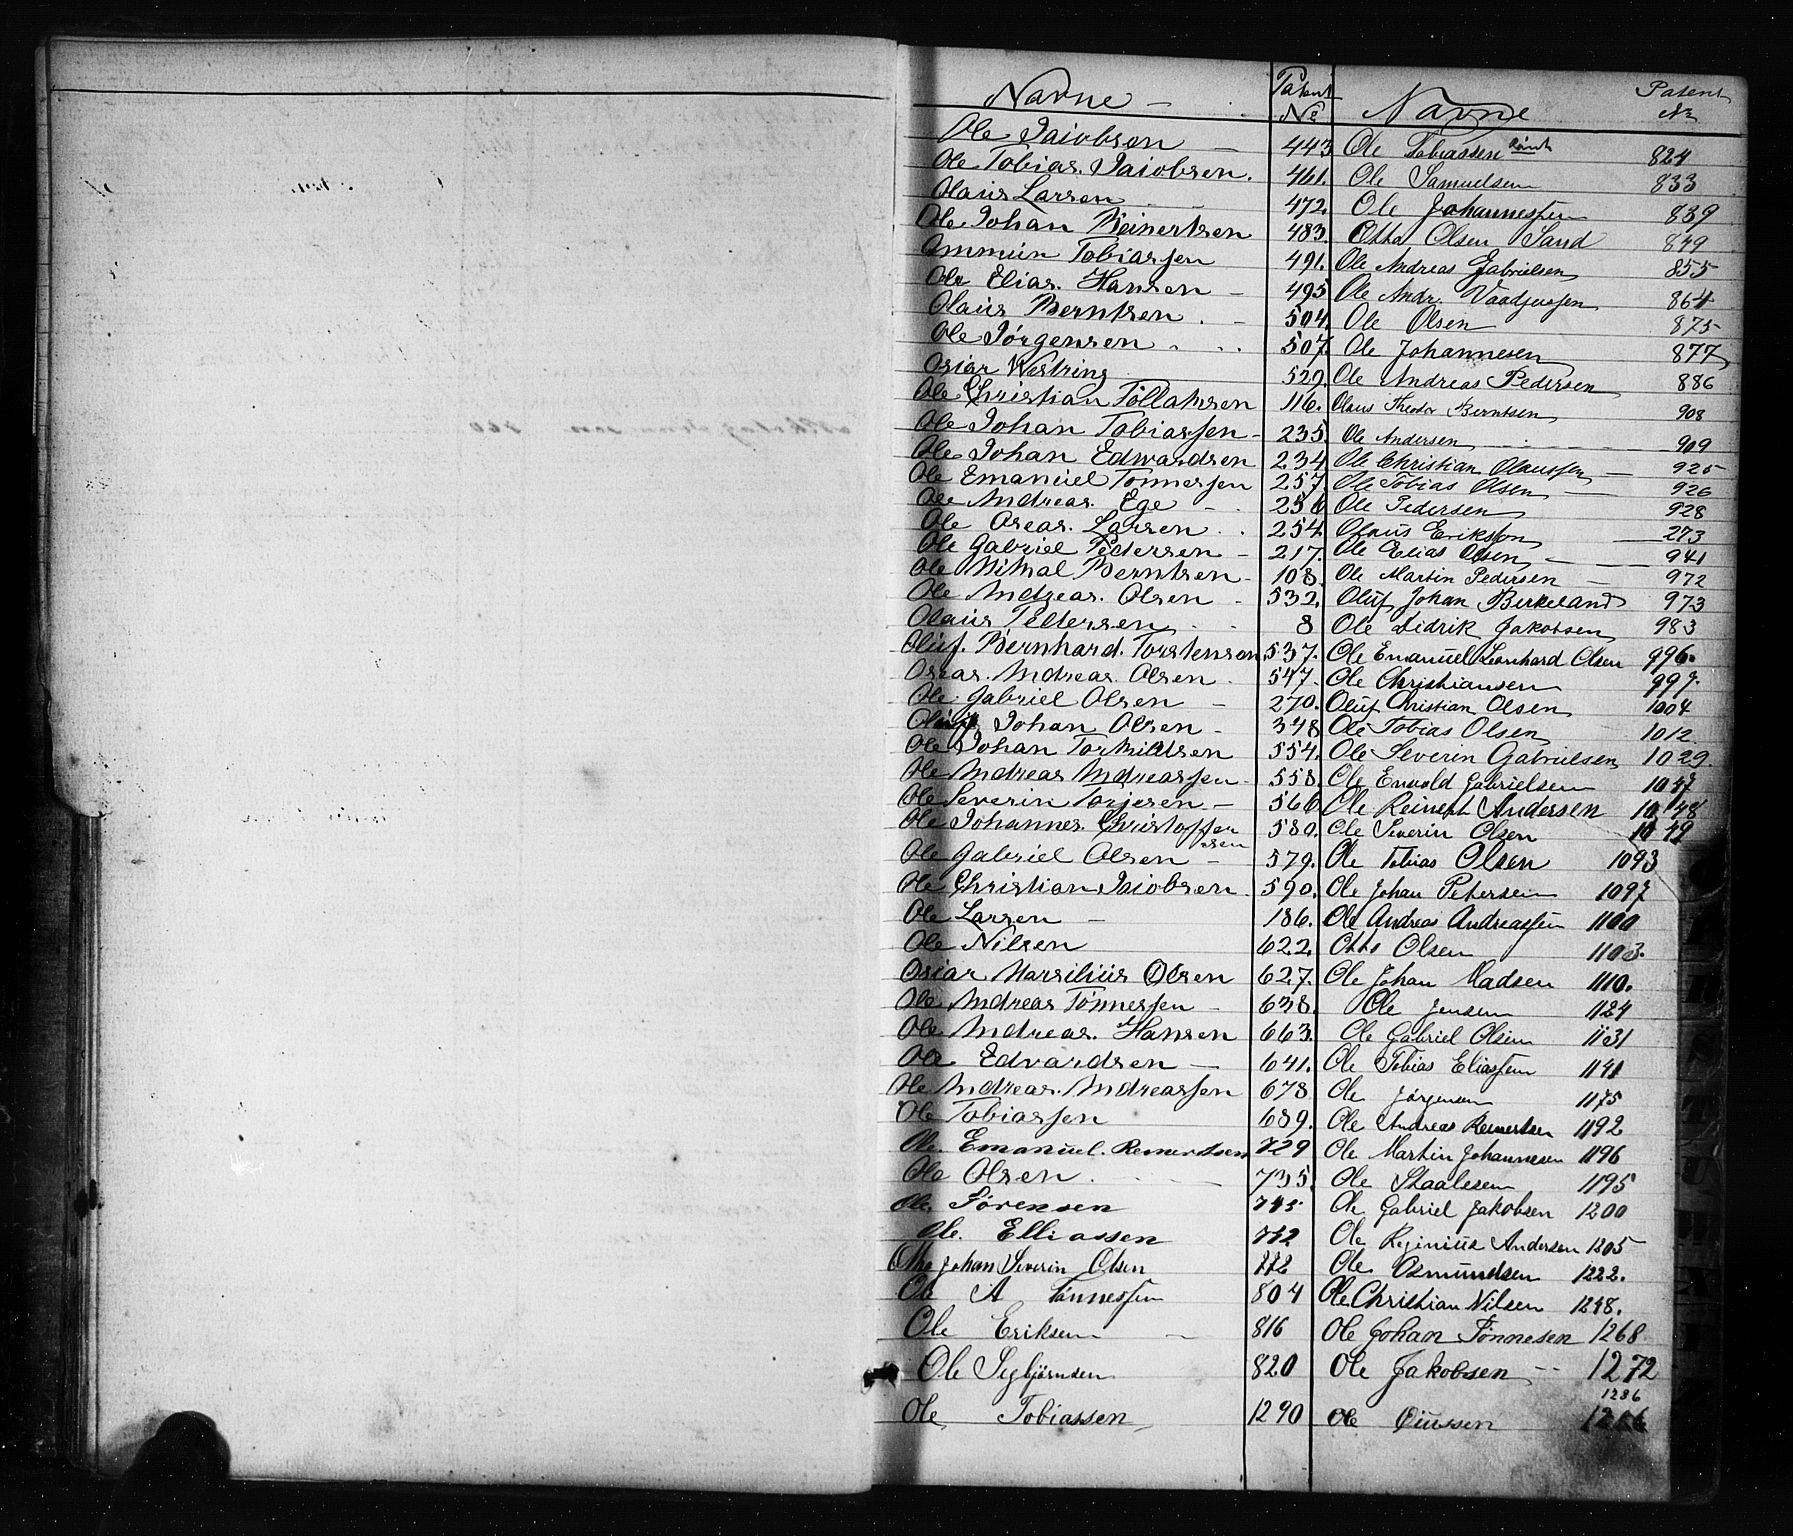 Navne Patent Nº Navne Patent Nº
Ole Jacobsen 443 Ole Tobiassen 824
Ole Tobias Jacobsen. 461. Ole Samuelsen 833
Olaus Larsen 472. Ole Johannessen 839
Ole Johan Reinertsen 483. Otto Olsen Sand 849
Ommun Tobiassen 491. Ole Andreas Gabrielsen 855
Ole Elias Hansen 495 Ole Andr. 864
Olaus Berntsen 504. Ole Olsen 875
Ole Jørgensen 507. Ole Johannesen 877
Oscar Westring 529. Ole Andreas Pedersen 886
Ole Christian Tollaksen 116. Olaus Theodor Berntsen 908
Ole Johan Tobiassen 235. Ole Andersen 909
Ole Johan Edwardsen 234 Ole Christian Olaussen 925
Ole Emanuel Tønnessen 257. Ole Tobias Olsen 926
Ole Andreas Ege 256 Ole Pedersen 928
Ole Larsen 254. Olaus Erikson 273
Ole Gabriel Pedersen 217. Ole Elias Olsen 941
Ole Mikal Berntsen 108. Ole Martin Pedersen 972
Ole Andreas Olsen 532. Oluf Johan Birkeland 973
Olaus Pedersen 8 Ole Didrik Jakobsen 983
Oluf. Bernhard. Torstensen 537. Ole Emanuel Leonhard Olsen 996.
Andreas Olsen 547. Ole Christiansen 997.
Ole Gabriel Olsen 270. Oluf Christian Olsen 1004
Johan Olsen 348 Ole Tobias Olsen 1012
Ole Johan Tormildsen 554. Ole Severin Gabrielsen 1029.
Ole Andreas Andreassen 558. Ole Enwold Gabrielsen 1047
Ole Severin Torjesen 566 Ole Reinert Andersen 1048
Ole Johannes Christoffersen 580. Ole Severin Olsen 1049
Ole Gabriel Olsen 579. Ole Tobias Olsen 1093
Ole Christian Jacobsen 590. Ole Johan Petersen 1097
Ole Larsen 186. Ole Andreas Andreassen 1100
Ole Nilsen 622. Otto Olsen 1103.
Oscar Marsilius Olsen 627. Ole Johan Madsen 1110.
Ole Andreas Tønnessen 638. Ole Jensen 1124
Ole Andreas. Hansen 663. Ole Gabriel Olsen 1131
Ole Edvardsen 641. Ole Tobias Eliassen 1141
Ole Andreas. Andreassen 678 Ole Jørgensen 1175
Ole Tobiassen 689. Ole Andreas Reinertsen 1192
Ole. Emanuel. Reinertsen 729 Ole Martin Johannesen 1196
Ole Olsen 735. Ole Staalesen 1195
Ole Sørensen 745 Ole Gabriel Jakobsen 1200
Ole. Elliassen 752 Ole Reginius Andersen 1205
Otto Johan Severin Olsen 772 Ole Osmundsen 1222.
Ole A Tønnessen 804 Ole Christian Nilsen 1248.
Ole Eriksen 816 Ole Johan Tønnesen 1268
Ole Segbjørnsen 820 Ole Jakobsen 1272
1286
Ole Tobiassen 1290 Ole